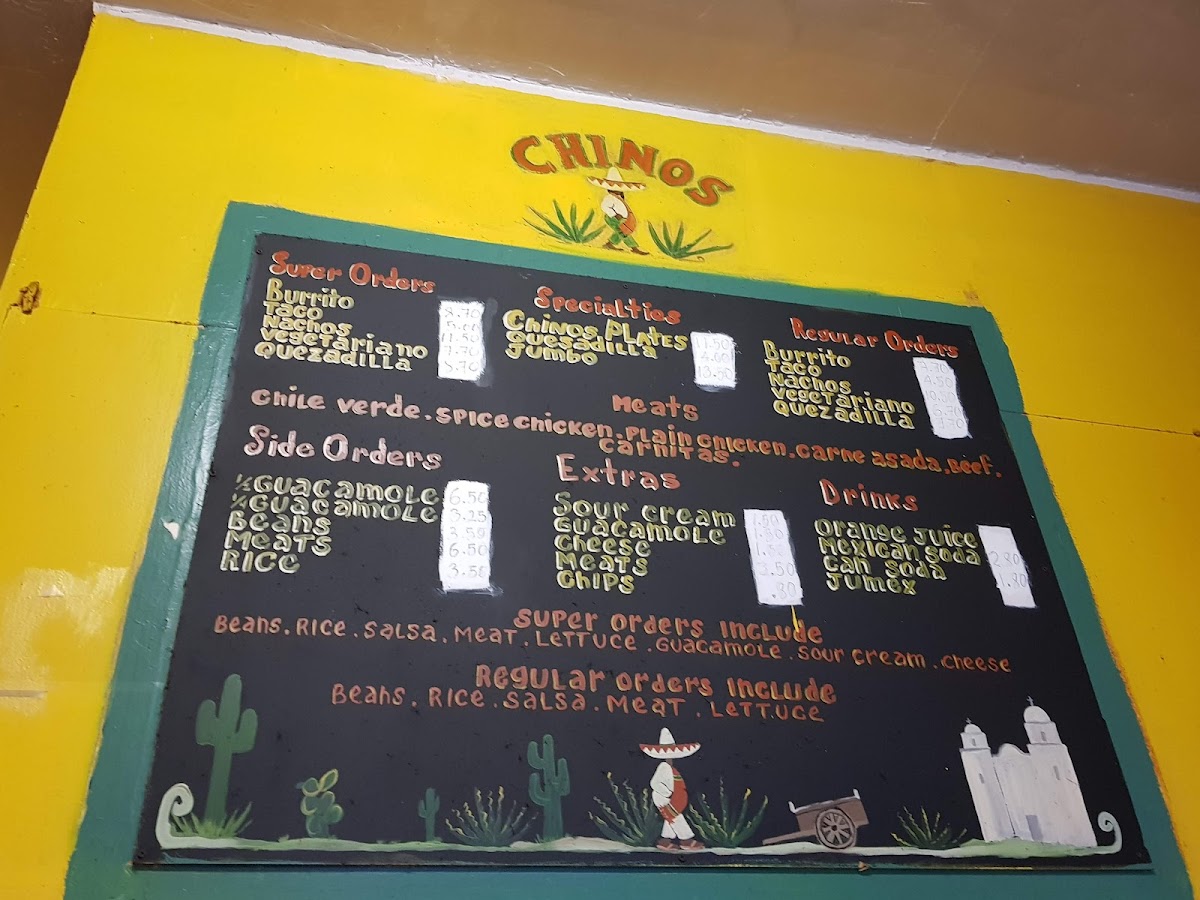 CHINOS
Super Orders
Burrito
Taco 5.00
Nachos 11.50
Vegetariano 7.70
Quezadilla 5.70
Specialties
Chinos Plates 11.50
Quesadilla 4.00
Jumbo 13.50
Regular Orders
Burrito 7.70
Taco 4.50
Nachos 10.50
Vegetariano
Quezadilla 3.70
Meats
Chile verde. Spice chicken. Plain chicken. Carne asada. Beef.
Carnitas.
Side Orders
Guacamole 6.50
½ Guacamole 3.25
Beans 3.50
Meats 6.50
Rice 3.50
Extras
Sour cream 1.50
Guacamole 1.50
Cheese
Meats 3.50
Chips .80
Drinks
Orange Juice
Mexican Soda
Can Soda
Jumex
Super orders include
Beans. Rice. Salsa. Meat. Lettuce. Guacamole. Sour cream. Cheese
Regular orders include
Beans. Rice. Salsa. Meat. Lettuce